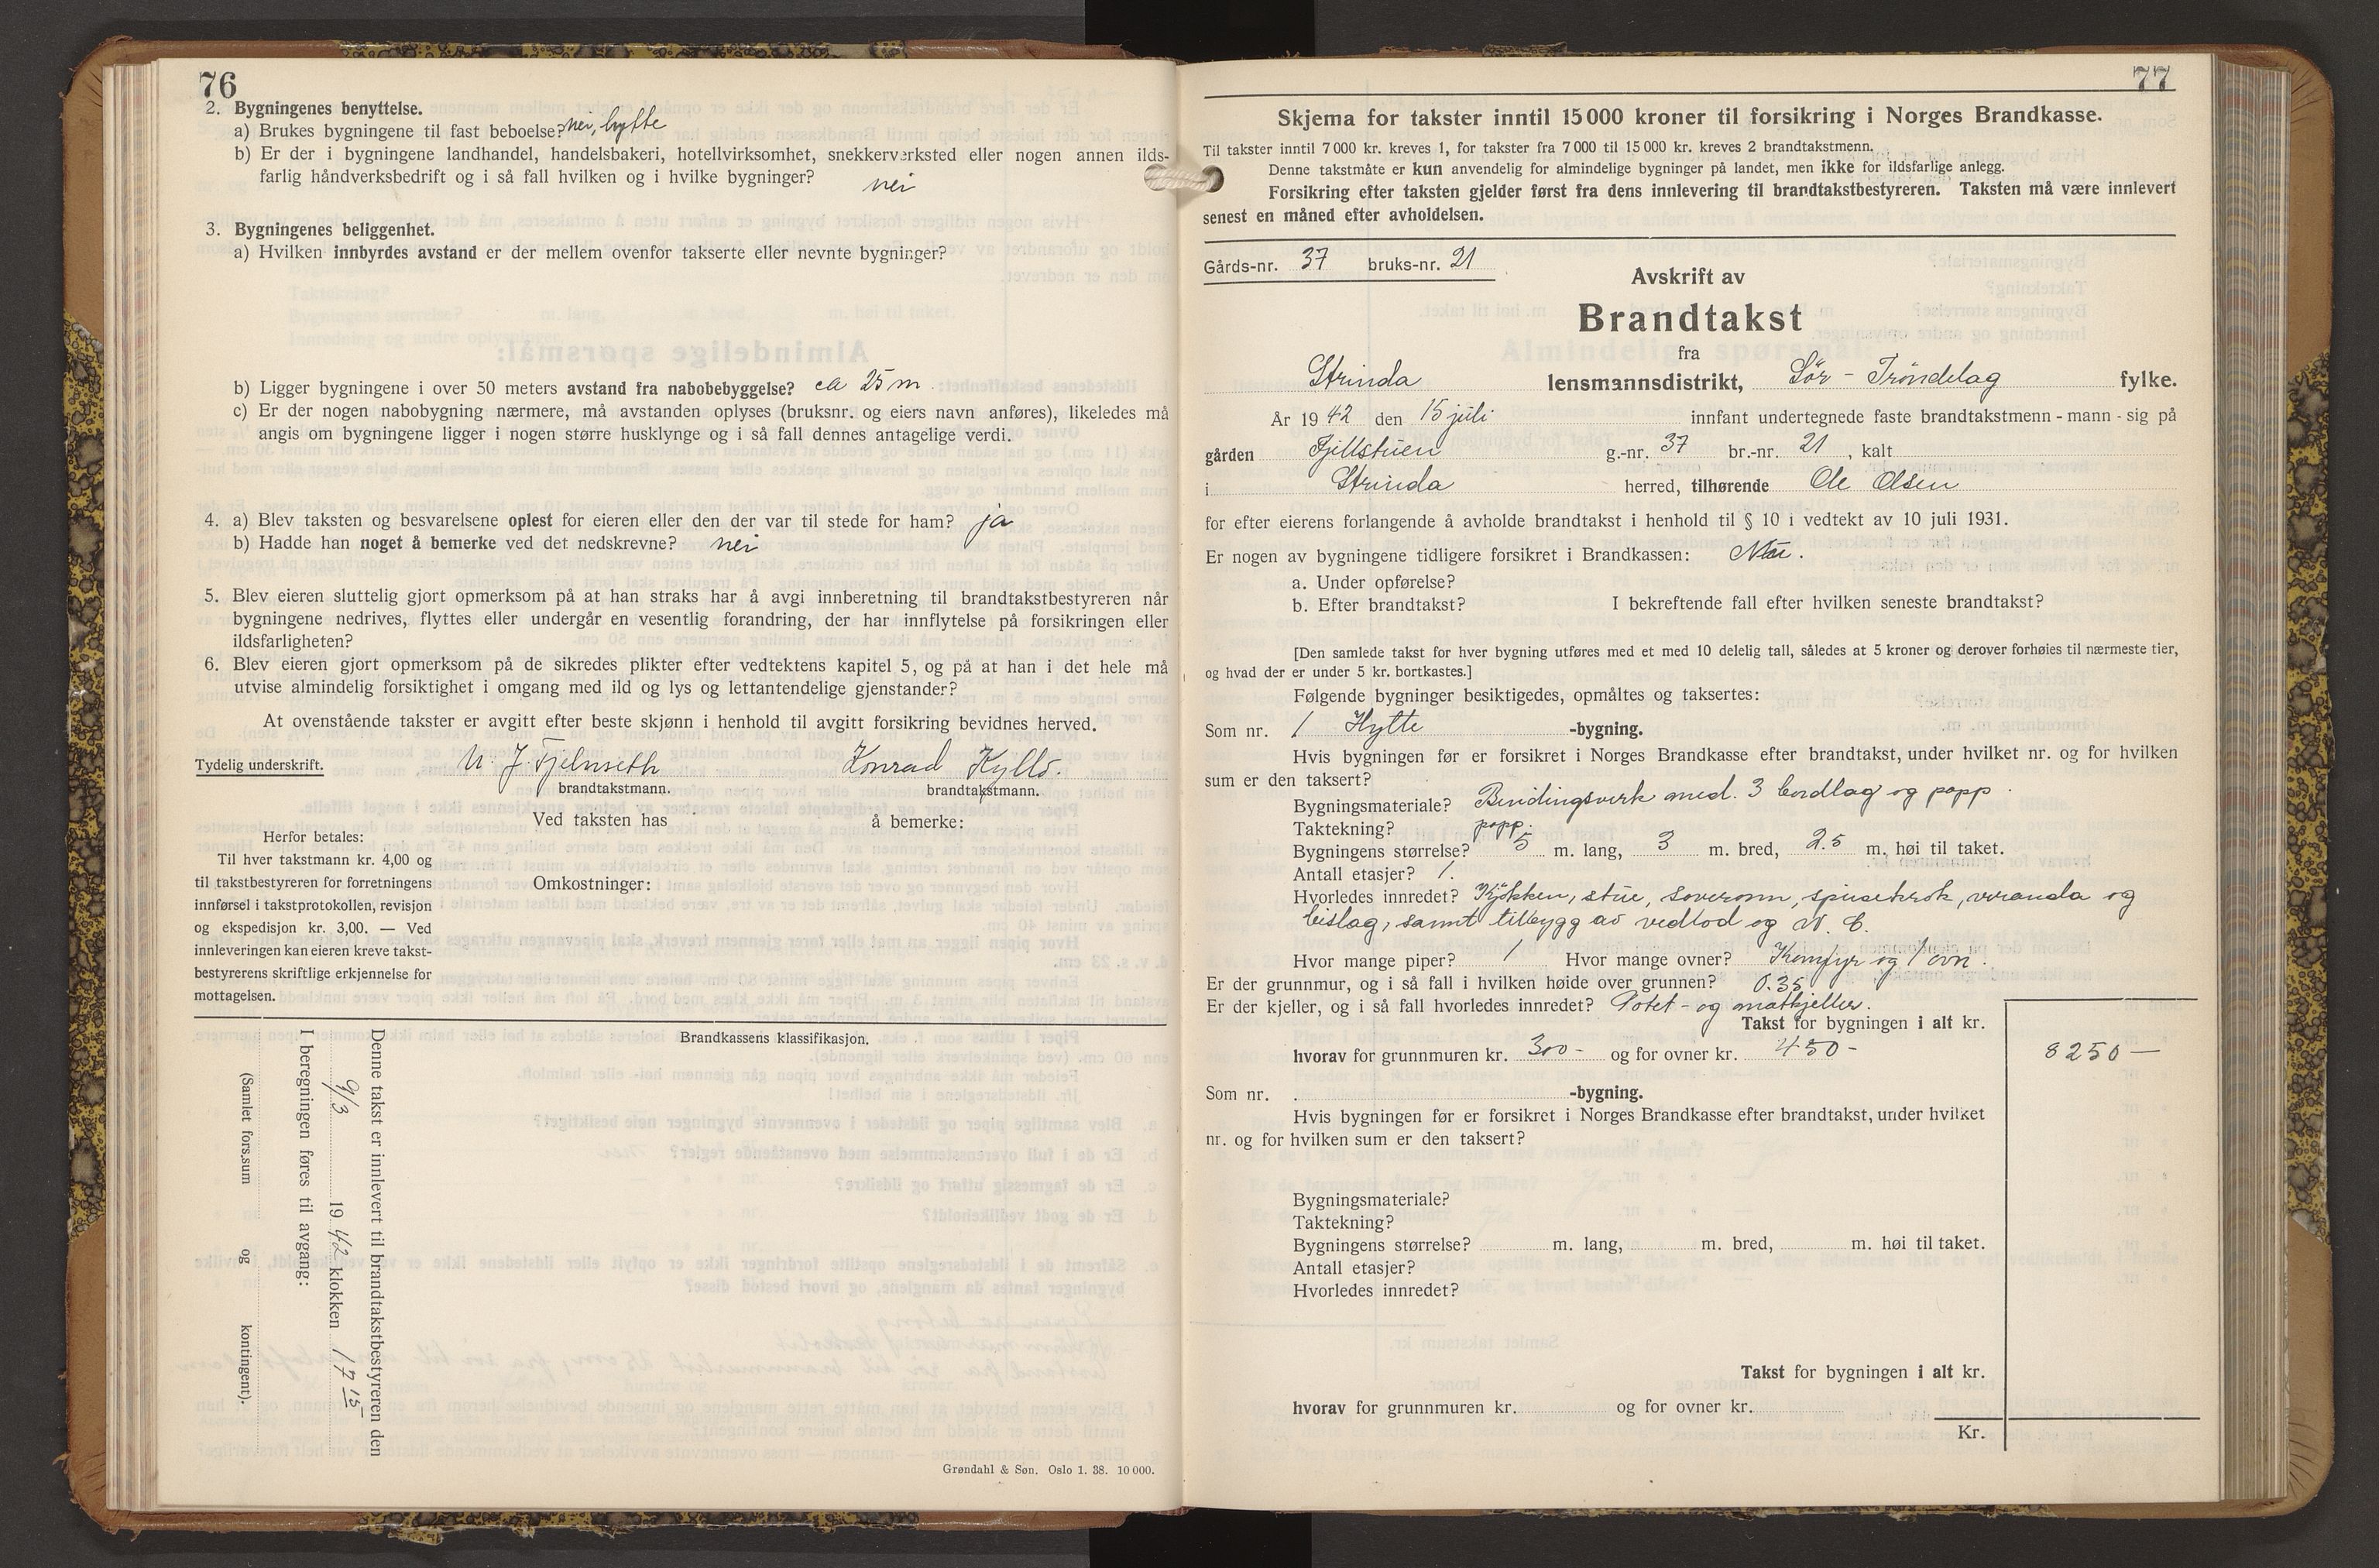 76
2. Bygningenes benyttelse.
a) Brukes bygningene til fast beboelse? nei, hytte
b) Er der i bygningene landhandel, handelsbakeri, hotellvirksomhet, snekkerverksted eller nogen annen ilds-
farlig håndverksbedrift og i så fall hvilken og i hvilke bygninger? nei
3. Bygningenes beliggenhet.
a) Hvilken innbyrdes avstand er der mellem ovenfor takserte eller nevnte bygninger?
b) Ligger bygningene i over 50 meters avstand fra nabobebyggelse? ca 25 m
c) Er der nogen nabobygning nærmere, må avstanden oplyses (bruksnr. og eiers navn anføres), likeledes må
angis om bygningene ligger i nogen større husklynge og i så fall dennes antagelige verdi.
4. a) Blev taksten og besvarelsene oplest for eieren eller den der var til stede for ham? ja
b) Hadde han noget å bemerke ved det nedskrevne? nei
5. Blev eieren sluttelig gjort opmerksom på at han straks har å avgi innberetning til brandtakstbestyreren når
bygningene nedrives, flyttes eller undergår en vesentlig forandring, der har innflytelse på forsikringen eller
ildsfarligheten?
6. Blev eieren gjort opmerksom på de sikredes plikter efter vedtektens kapitel 5, og på at han i det hele må
utvise almindelig forsiktighet i omgang med ild og lys og lettantendelige gjenstander?
At ovenstående takster er avgitt efter beste skjønn i henhold til avgitt forsikring bevidnes herved.
Tydelig underskrift. J. Fjelnseth Konrad Kyllo.
brandtakstmann. brandtakstmann.
Ved taksten has å bemerke:
Herfor betales:
Til hver takstmann kr. 4,00 og
til takstbestyreren for forretningens
innførsel i takstprotokollen, revisjon
og ekspedisjon kr. 3,00. — Ved
innleveringen kan eieren kreve takst-
bestyrerens skriftlige erkjennelse for
mottagelsen.
Omkostninger:
Brandkassens klassifikasjon.
Denne takst er innlevert til brandtakstbestyreren den
9/3 1942 klokken 17 15
I beregningen føres til avgang:
(Samlet fors.sum og kontingent).
Grøndahl & Søn. Oslo 1. 38. 10 000.
77
Skjema for takster inntil 15 000 kroner til forsikring i Norges Brandkasse.
Til takster inntil 7 000 kr. kreves 1, for takster fra 7 000 til 15 000 kr. kreves 2 brandtakstmenn.
Denne takstmåte er kun anvendelig for almindelige bygninger på landet, men ikke for ildsfarlige anlegg.
Forsikring efter taksten gjelder først fra dens innlevering til brandtakstbestyreren. Taksten må være innlevert
senest en måned efter avholdelsen.
Gårds-nr. 37 bruks-nr. 21
Avskrift av
Brandtakst
fra
Strinda lensmannsdistrikt, Sör - Tröndelag fylke.
År 1942 den 15 juli innfant undertegnede faste brandtakstmenn - mann - sig på
gården Fjellstuen g.-nr. 37 br.-nr. 21, kalt
i Strinda herred, tilhørende Ole Olsen
for efter eierens forlangende å avholde brandtakst i henhold til § 10 i vedtekt av 10 juli 1931.
Er nogen av bygningene tidligere forsikret i Brandkassen: Nei.
a. Under opførelse?
b. Efter brandtakst? I bekreftende fall efter hvilken seneste brandtakst?
[Den samlede takst for hver bygning utføres med et med 10 delelig tall, således at 5 kroner og derover forhøies til nærmeste tier,
og hvad der er under 5 kr. bortkastes.]
Følgende bygninger besiktigedes, opmåltes og taksertes:
Som nr. 1 Hytte -bygning.
Hvis bygningen før er forsikret i Norges Brandkasse efter brandtakst, under hvilket nr. og for hvilken
sum er den taksert?
Bygningsmateriale? Bindingsverk med. 3 bordlag og papp.
Taktekning? papp.
Bygningens størrelse? 5 m. lang, 3 m. bred, 2.5 m. høi til taket.
Antall etasjer? 1.
Hvorledes innredet? Kjökken, stue, soverom, spisekrok, veranda og
bislag, samt tilbygg av vedbod og W. C.
Hvor mange piper? 1 Hvor mange ovner? Komfyr og 1 ovn.
Er der grunnmur, og i så fall i hvilken høide over grunnen? 0.35
Er der kjeller, og i så fall hvorledes innredet? Potet - og matkjeller.
Takst for bygningen i alt kr.
hvorav for grunnmuren kr. 300 - og for ovner kr. 450 - 8250 —
Som nr. -bygning.
Hvis bygningen før er forsikret i Norges Brandkasse efter brandtakst, under hvilket
nr. og for hvilken sum er den taksert?
Bygningsmateriale?
Taktekning?
Bygningens størrelse? m. lang, m. bred, m. høi til taket.
Antall etasjer?
Hvorledes innredet?
Takst for bygningen i alt kr.
hvorav for grunnmuren kr. og for ovner kr.
Kr.